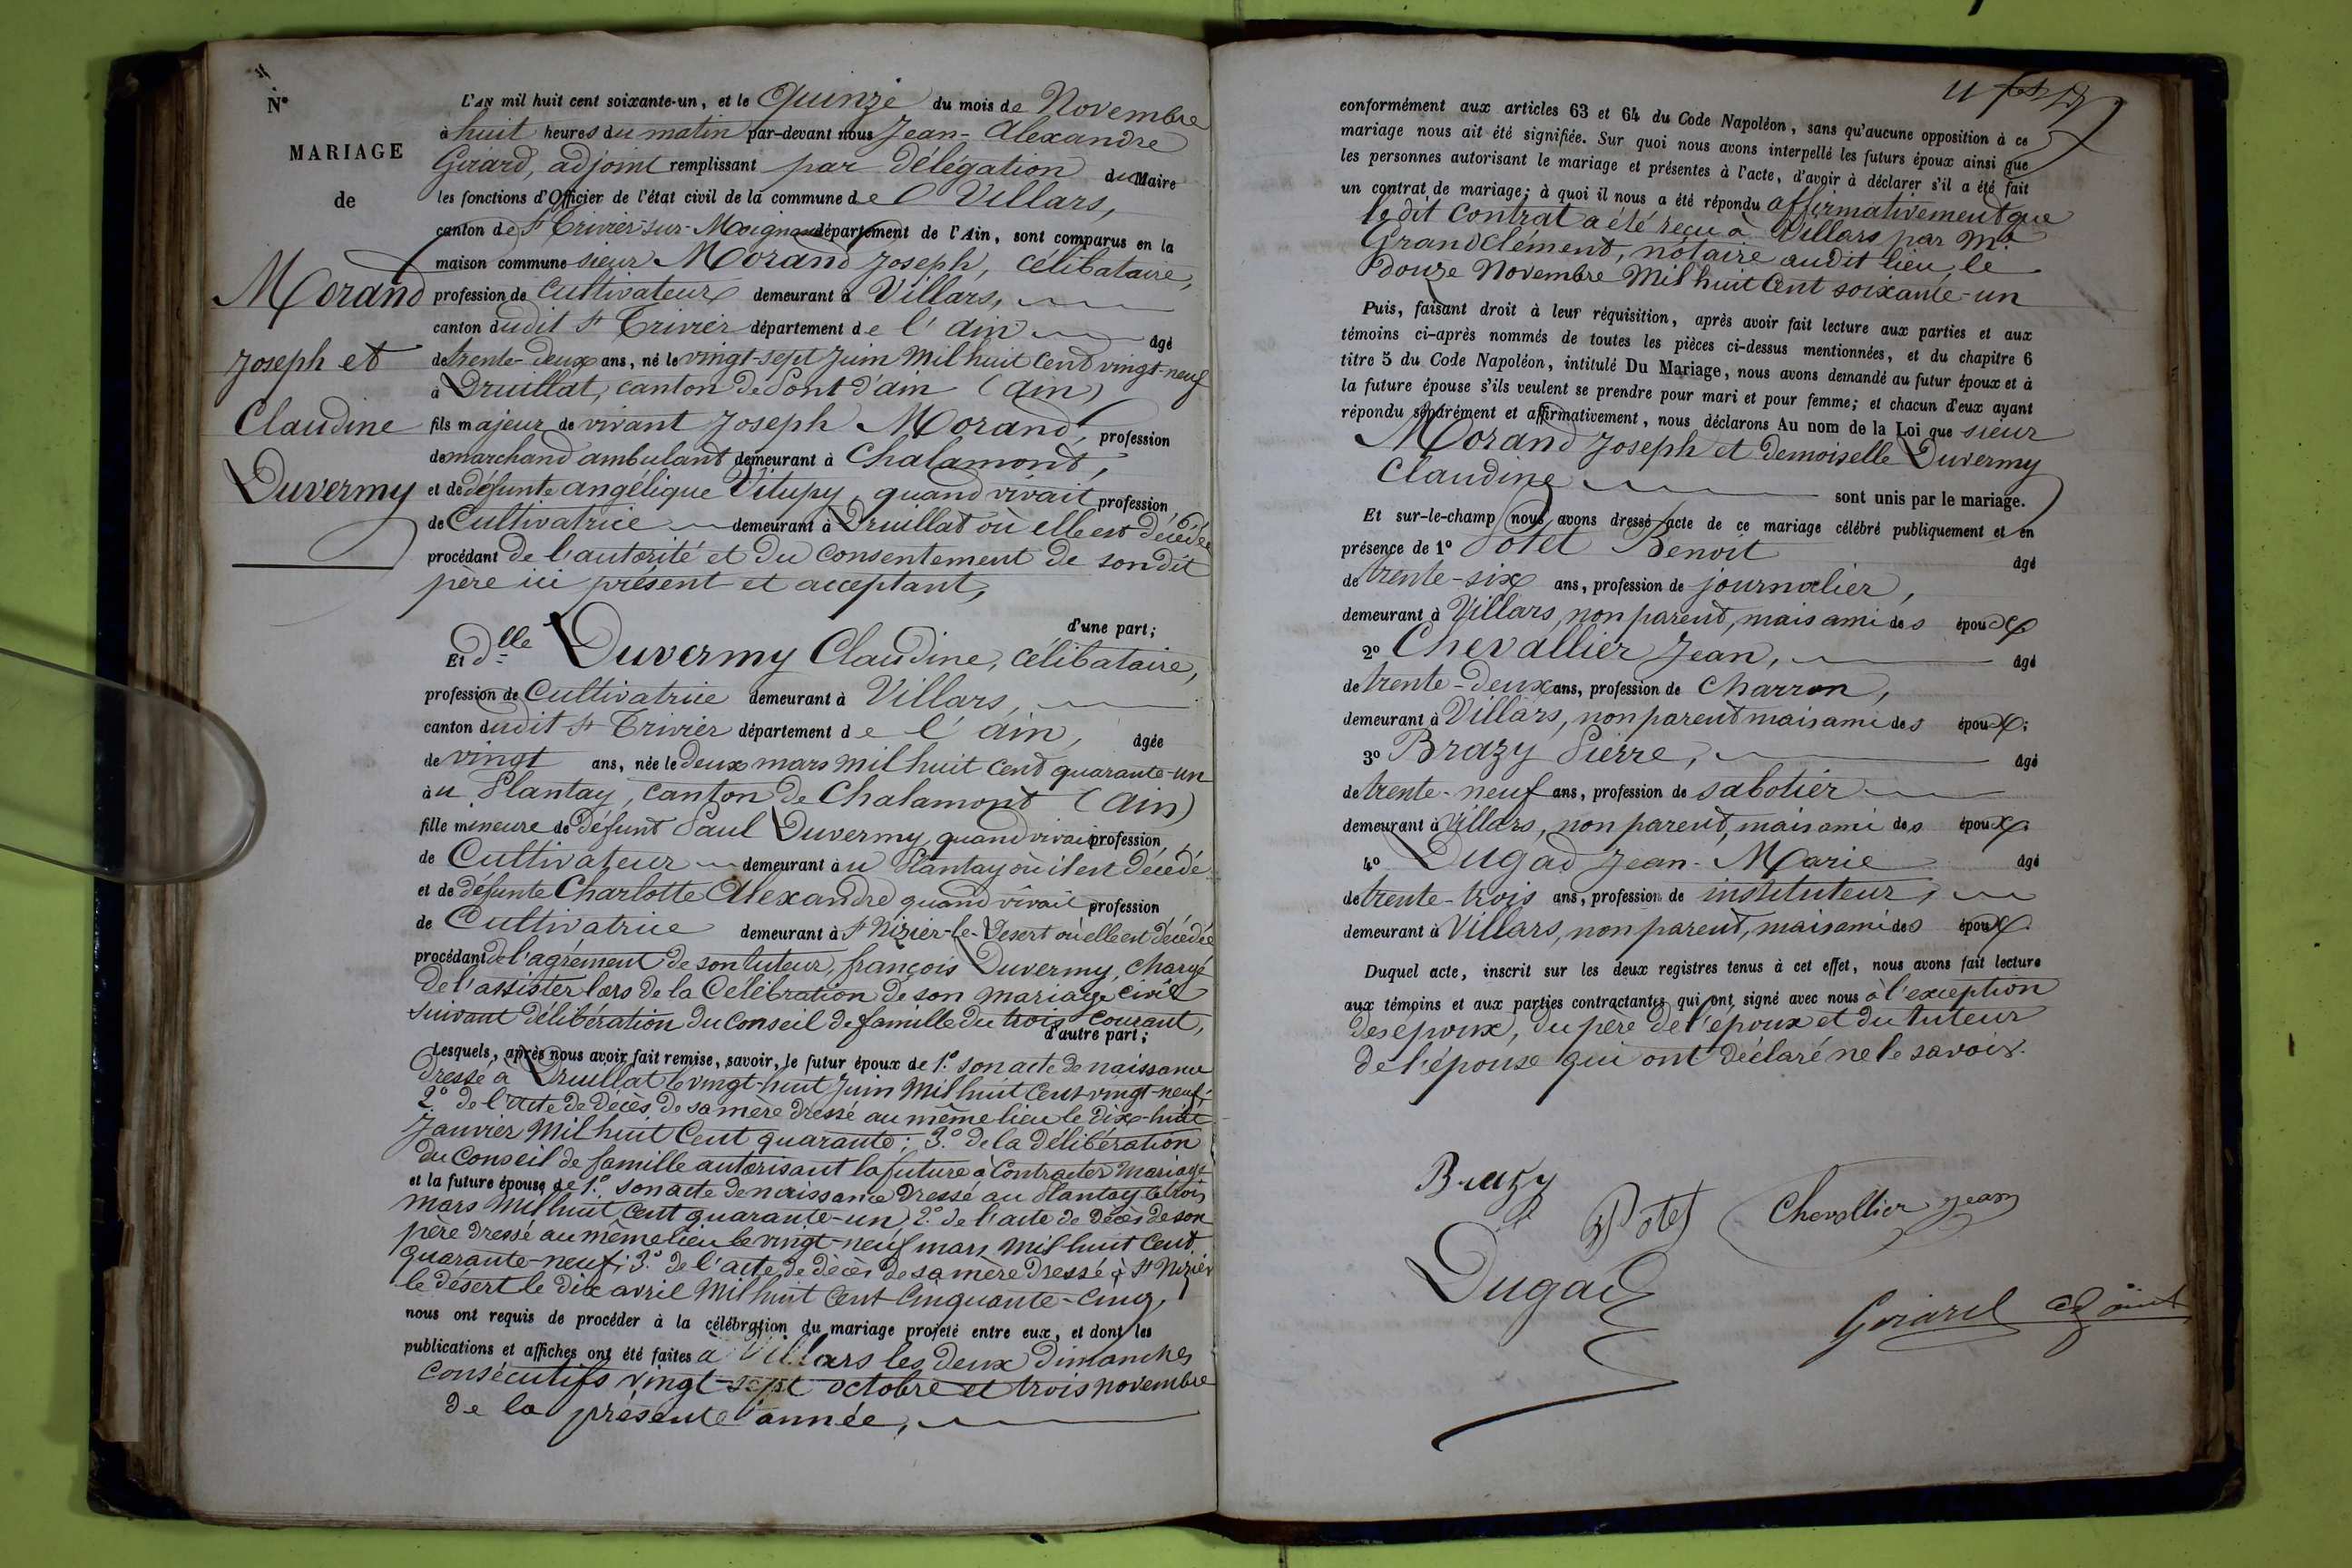 N°
MARIAGE
de
Morand
Joseph et
Claudine
Duvermy
L'AN mil huit cent soixante-un, et le Quinze du mois de Novembre
à huit heures du matin par-devant nous Jean-Alexandre
Girard, adjoint remplissant par délégation du Maire
les fonctions d'Officier de l'état civil de la commune de Villars,
canton de St Trivier-sur-Moignans département de l'Ain, sont comparus en la
maison commune sieur Morand Joseph, célibataire,
profession de Cultivateur demeurant à Villars,
canton dudit St Trivier département de l'Ain âgé
de trente-deux ans, né le vingt-sept Juin Mil huit Cent vingt-neuf
à Druillat, canton de Pont d'ain (Ain)
fils majeur de vivant Joseph Morand, profession
de marchand ambulant demeurant à Chalamont,
et de défunte angélique Vitupy, quand vivait profession
de Cultivatrice demeurant à Druillat où elle est décédée
procédant de l'autorité et du consentement de son dit
père ici présent et acceptant,
d'une part;
Et dlle Duvermy Claudine, célibataire,
profession de Cultivatrice demeurant à Villars,
canton dudit St Trivier département de l'ain, âgée
de vingt ans, née le deux mars mil huit cent quarante-un
au Plantay, canton de Chalamont (Ain)
fille mineure de défunt Paul Duvermy, quand vivait profession
de Cultivateur demeurant au Plantay où il est décédé
et de défunte Charlotte Alexandre quand vivait profession
de Cultivatrice demeurant à St Nizier-le-Desert où elle est décédée
procédant de l'agrément de son tuteur, françois Duvermy, chargé
de l'assister lors de la Célébration de son mariage civil
suivant délibération du Conseil de famille du trois courant,
d'autre part;
Lesquels, après nous avoir fait remise, savoir, le futur époux de 1.° son acte de naissance
dressé à Druillat le vingt-huit Juin Mil huit Cent vingt-neuf;
2° de l'acte de décès de sa mère dressé au même lieu le dix-huit
Janvier Mil huit Cent quarante; 3.° de la délibération
du Conseil de famille autorisant la future à Contracter Mariage
et la future épouse de 1.° son acte de naissance dressé au Plantay le trois
mars Mil huit Cent quarante-un; 2.° de l'acte de décès de son
père dressé au même lieu le vingt-neuf mars mil huit Cent
quarante-neuf; 3.° de l'acte de décès de sa mère dressé à St Nizier
le désert le dix avril Mil huit Cent Cinquante-Cinq,
nous ont requis de procéder à la célébration du mariage projeté entre eux, et dont les
publications et affiches ont été faites à Villars les deux Dimanches
Consécutifs vingt-sept octobre et trois novembre
de la présente année,
conformément aux articles 63 et 64 du Code Napoléon, sans qu'aucune opposition à ce
mariage nous ait été signifiée. Sur quoi nous avons interpellé les futurs époux ainsi que
les personnes autorisant le mariage et présentes à l'acte, d'avoir à déclarer s'il a été fait
un contrat de mariage; à quoi il nous a été répondu affirmativement que
le dit Contrat a été reçu à Villars par Me.
Grandclément, notaire audit lieu, le
douze Novembre Mil huit Cent soixante-un
Puis, faisant droit à leur réquisition, après avoir fait lecture aux parties et aux
témoins ci-après nommés de toutes les pièces ci-dessus mentionnées, et du chapitre 6
titre 5 du Code Napoléon, intitulé Du Mariage, nous avons demandé au futur époux et à
la future épouse s'ils veulent se prendre pour mari et pour femme; et chacun d'eux ayant
répondu séparément et affirmativement, nous déclarons Au nom de la Loi que sieur
Morand Joseph et demoiselle Duvermy
Claudine sont unis par le mariage.
Et sur-le-champ nous avons dressé acte de ce mariage célébré publiquement et en
présence de 1° Potet Benoit âgé
de trente-six ans, profession de journalier,
demeurant à Villars, non parent, mais ami des époux
2° Chevallier Jean, âgé
de trente-deux ans, profession de Charron,
demeurant à Villars, non parent mais ami des époux;
3° Brazy Pierre, âgé
de trente-neuf ans, profession de sabotier
demeurant à Villars, non parent, mais ami des époux.
4° Dugad Jean-Marie âgé
de trente-trois ans, profession de instituteur,
demeurant à Villars, non parent, mais ami des époux.
Duquel acte, inscrit sur les deux registres tenus à cet effet, nous avons fait lecture
aux témoins et aux parties contractantes qui ont signé avec nous à l'exception
des époux, du père de l'époux et du tuteur
de l'épouse qui ont déclaré ne le savoir.
Brazy
Potet
Chevallier jean
Dugad
Girard adjoint